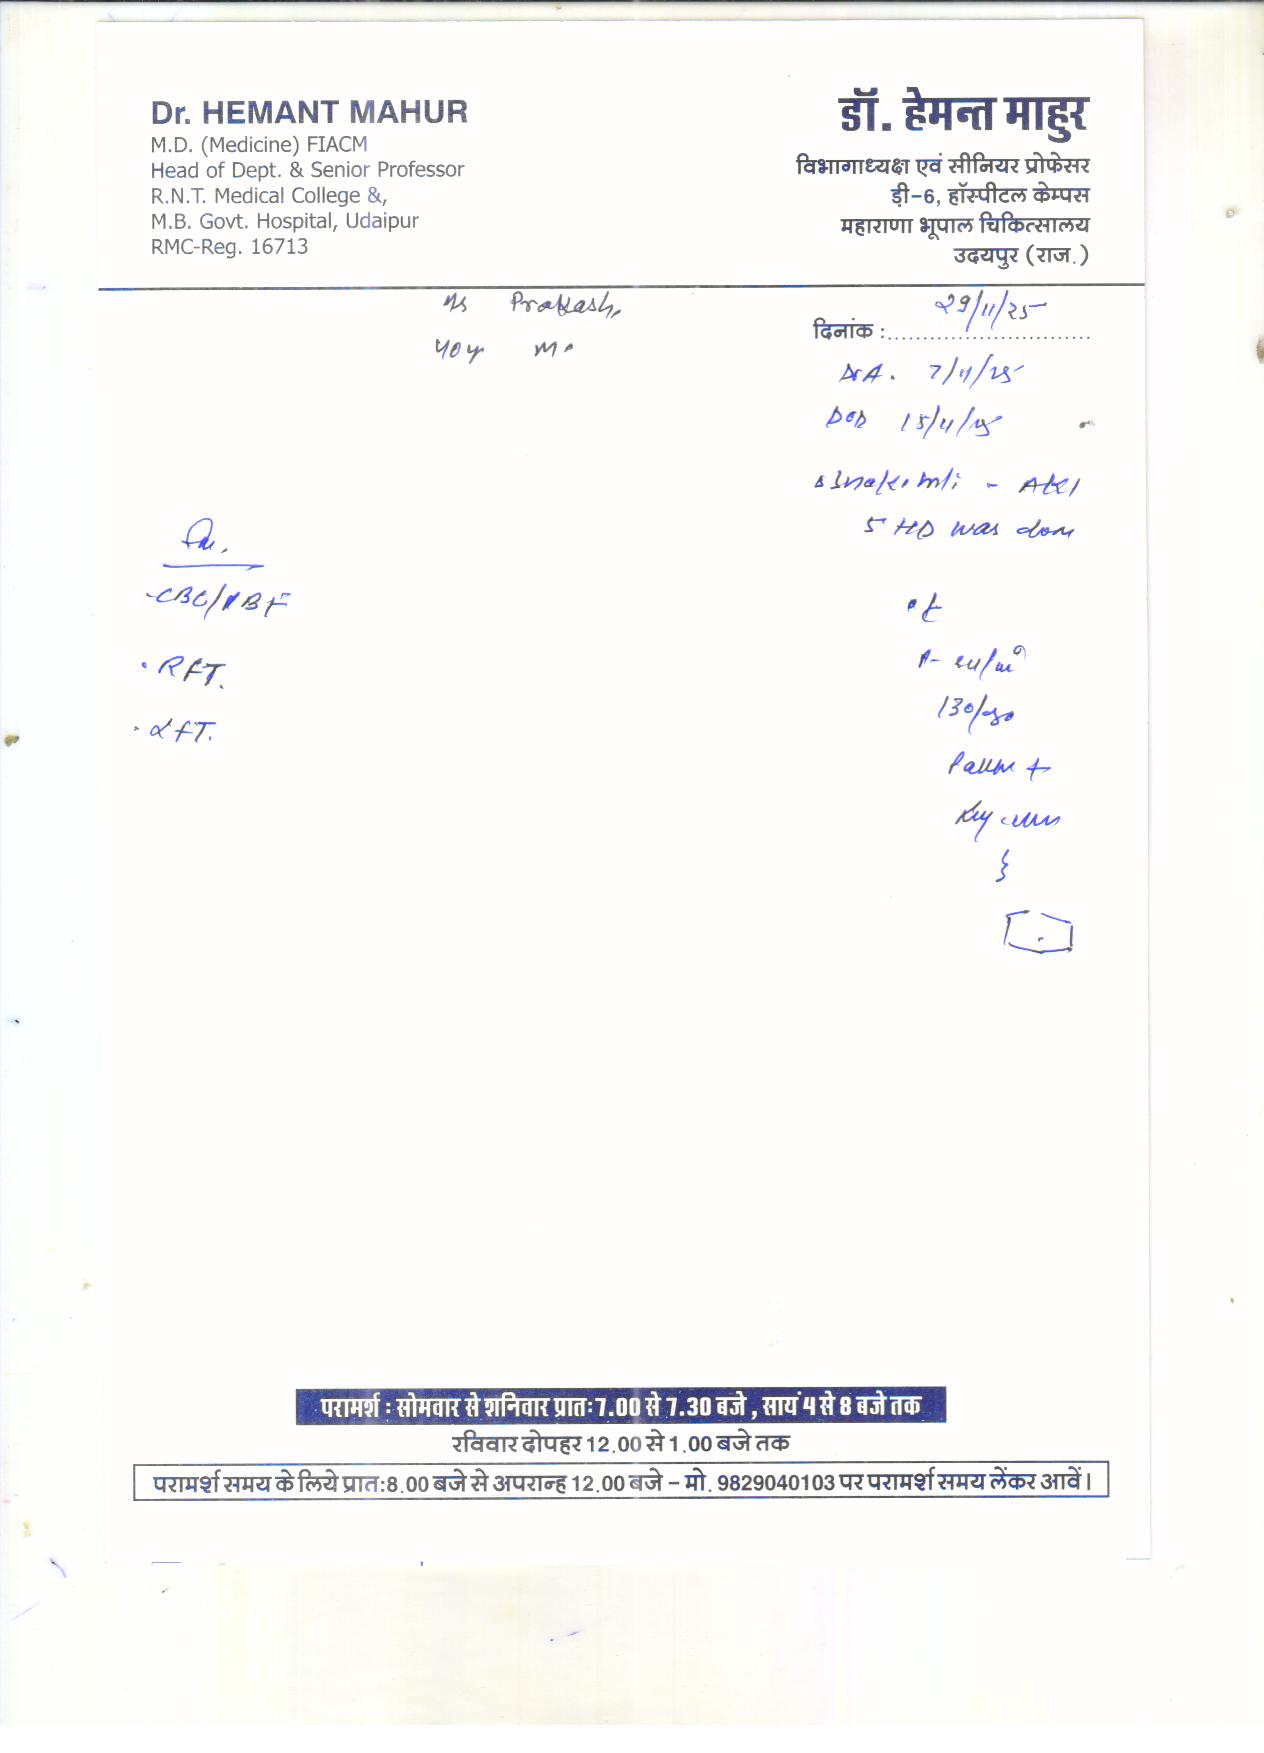 Dr. HEMANT MAHUR
M.D. (Medicine) FIACM
Head of Dept. & Senior Professor
R.N.T. Medical College &,
M.B. Govt. Hospital, Udaipur
RMC-Reg. 16713
डॉ. हेमन्त माहुर
विभागाध्यक्ष एवं सीनियर प्रोफेसर
ड़ी-6, हॉस्पीटल केम्पस
महाराणा भूपाल चिकित्सालय
उदयपुर (राज.)
Prakash
दिनांक : 29/11/25
40y M.
DOA. 7/11/25
DOD 15/11/25
- AKI
5 HD was done
CBC/PBF
RFT.
LFT.
130/80
Pallor +
परामर्श : सोमवार से शनिवार प्रातः 7.00 से 7.30 बजे , सायं 4 से 8 बजे तक
रविवार दोपहर 12.00 से 1.00 बजे तक
परामर्श समय के लिये प्रात:8.00 बजे से अपरान्ह 12.00 बजे – मो. 9829040103 पर परामर्श समय लेंकर आवें।